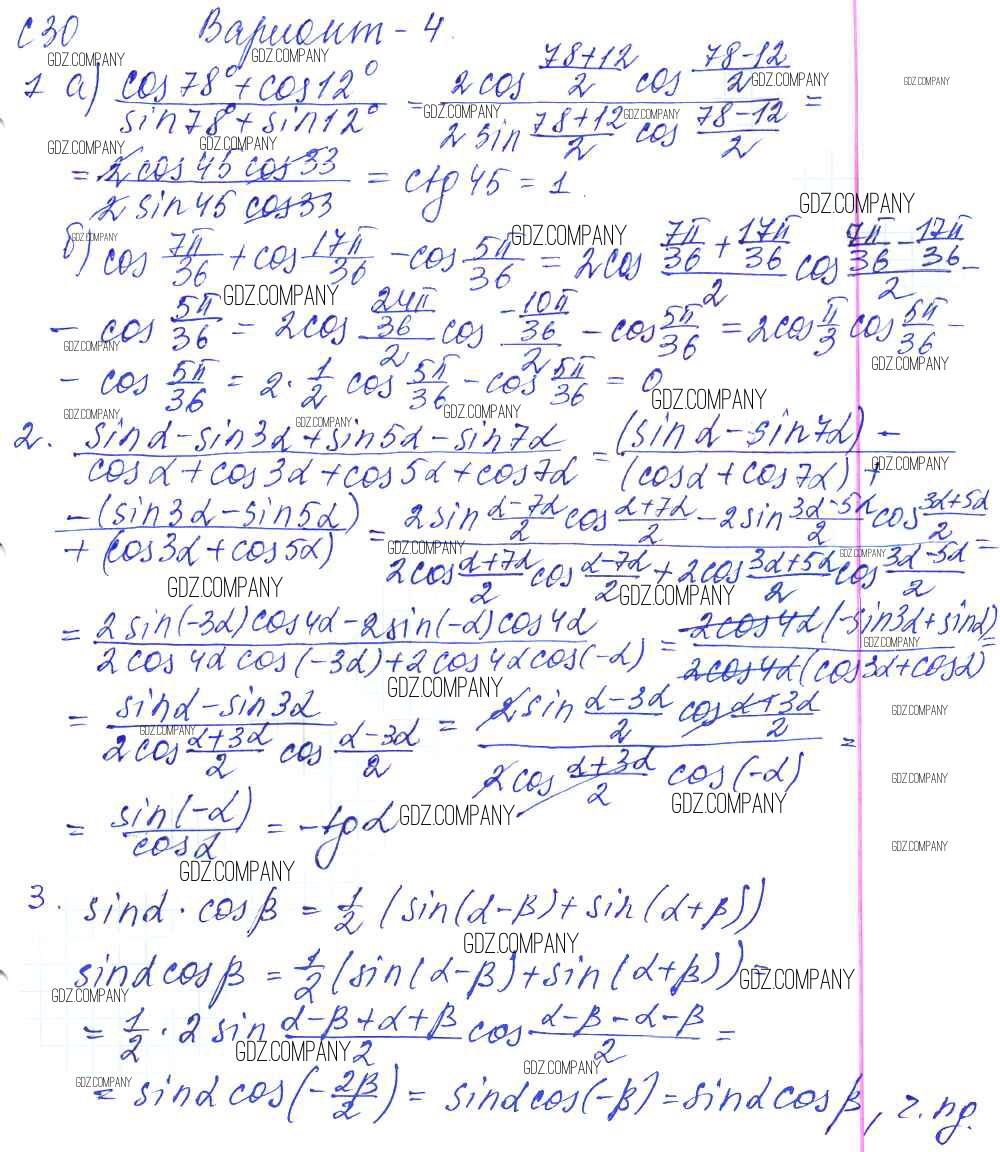 С 30 Вариант - 4.
1 а) (cos 78° + cos 12°)/(sin 78° + sin 12°) = (2 cos (78+12)/2 cos (78-12)/2)/(2 sin (78+12)/2 cos (78-12)/2) =
= (2 cos 45 cos 33)/(2 sin 45 cos 33) = ctg 45 = 1.
б) cos 7π/36 + cos 17π/36 - cos 5π/36 = 2 cos (7π/36 + 17π/36)/2 cos (7π/36 - 17π/36)/2 -
- cos 5π/36 = 2 cos (24π/36)/2 cos (-10π/36)/2 - cos 5π/36 = 2 cos π/3 cos 5π/36 -
- cos 5π/36 = 2 · 1/2 cos 5π/36 - cos 5π/36 = 0
2. (sin α - sin 3α + sin 5α - sin 7α)/(cos α + cos 3α + cos 5α + cos 7α) = (sin α - sin 7α) - / (cos α + cos 7α) +
- (sin 3α - sin 5α) / + (cos 3α + cos 5α) = (2 sin (α-7α)/2 cos (α+7α)/2 - 2 sin (3α-5α)/2 cos (3α+5α)/2)/(2 cos (α+7α)/2 cos (α-7α)/2 + 2 cos (3α+5α)/2 cos (3α-5α)/2) =
= (2 sin(-3α) cos 4α - 2 sin(-α) cos 4α)/(2 cos 4α cos(-3α) + 2 cos 4α cos(-α)) = (2 cos 4α (-sin 3α + sin α))/(2 cos 4α (cos 3α + cos α)) =
= (sin α - sin 3α)/(2 cos (α+3α)/2 cos (α-3α)/2) = (2 sin (α-3α)/2 cos (α+3α)/2)/(2 cos (α+3α)/2 cos(-α)) =
= sin(-α)/cos α = -tg α
3. sin α · cos β = 1/2 (sin(α-β) + sin(α+β))
sin α cos β = 1/2 (sin(α-β) + sin(α+β)) =
= 1/2 · 2 sin (α-β+α+β)/2 cos (α-β-α-β)/2 =
= sin α cos(-2β/2) = sin α cos(-β) = sin α cos β, ч. пд.
GDZ.COMPANY